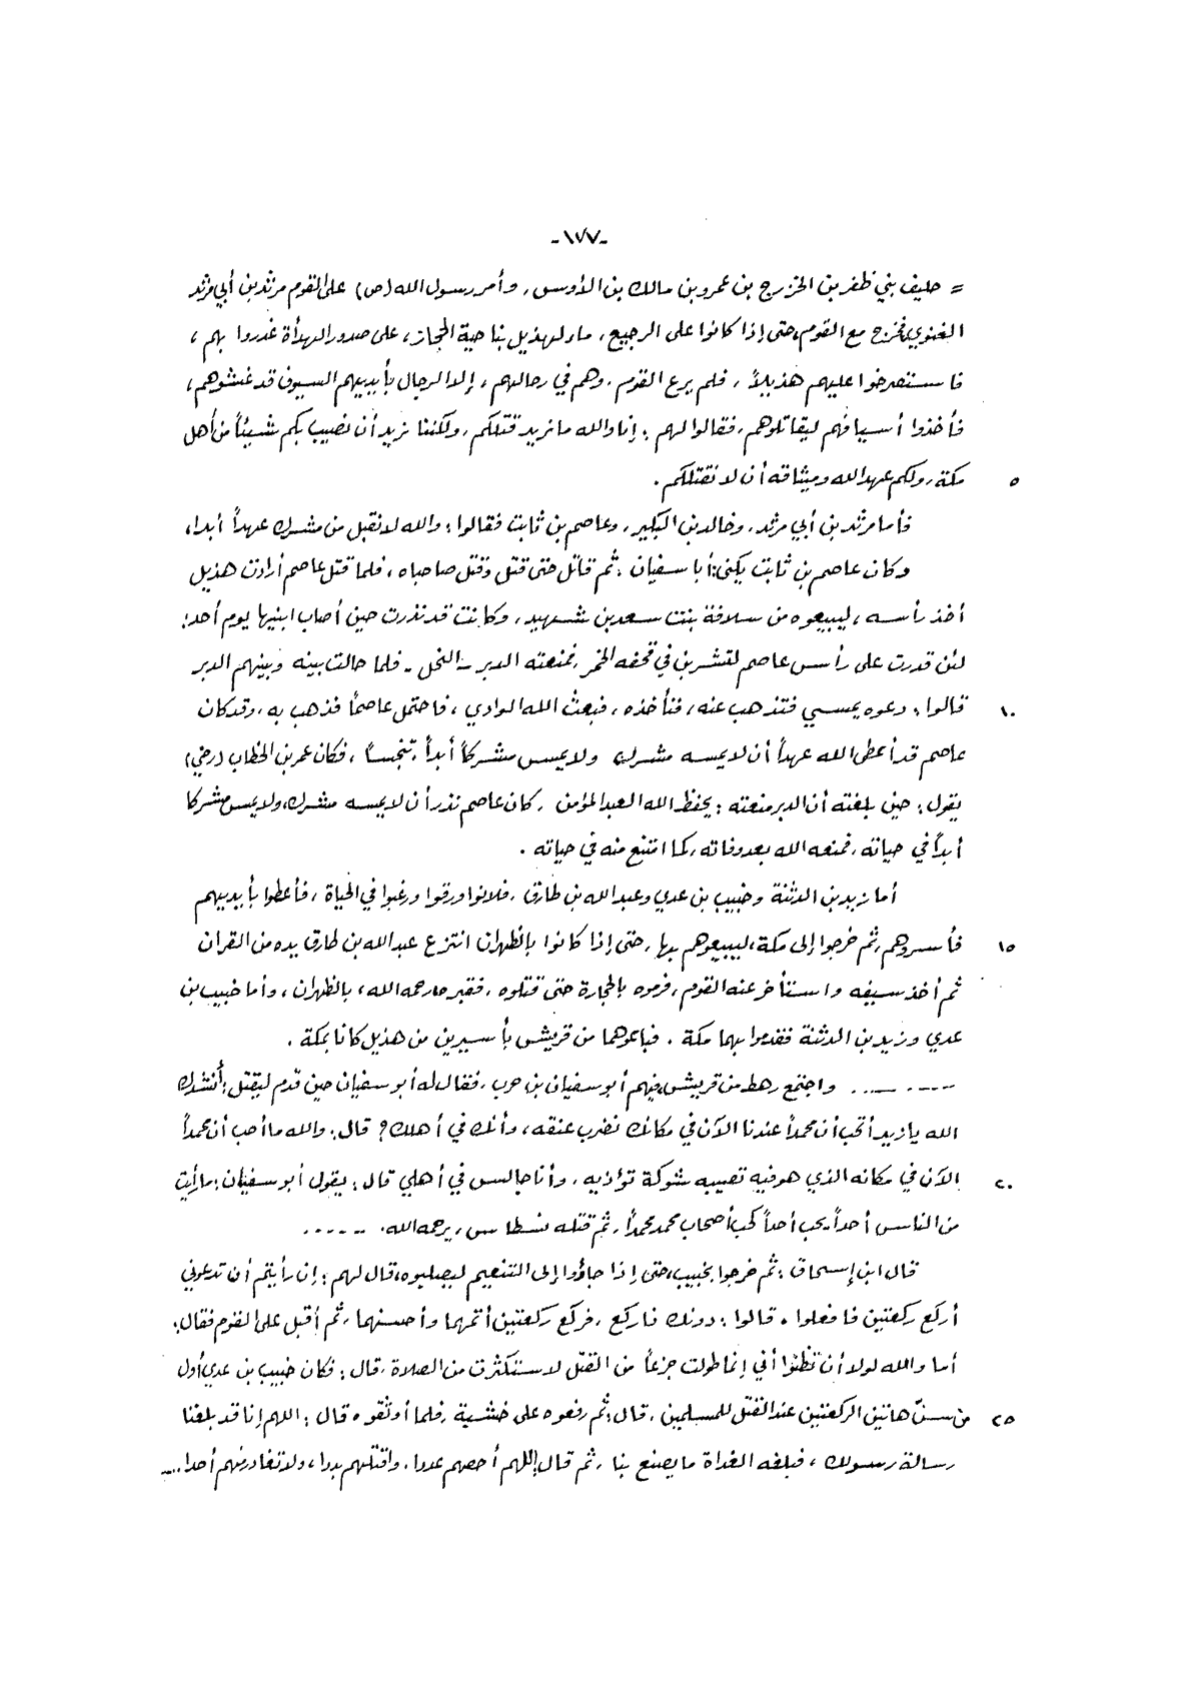 -١٧٧-
= حليف بني ظفر بن الخزرج بن عمرو بن مالك بن الأوس، وأمر رسول الله (ص) على القوم مرثد بن أبي مرثد
الغنوي فخرج مع القوم، حتى إذا كانوا على الرجيع، ماء لهذيل بناحية الحجاز، على صدور الهدأة غدروا بهم،
فاستصرخوا عليهم هذيلاً، فلم يرع القوم، وهم في رحالهم، إلا الرجال بأيديهم السيوف قد غشوهم،
فأخذوا أسيافهم ليقاتلوهم، فقالوا لهم: إنا والله ما نريد قتلكم، ولكننا نريد أن نصيب بكم شيئاً من أهل
٥ مكة، ولكم عهد الله وميثاقه أن لا نقتلكم.
فأما مرثد بن أبي مرثد، وخالد بن البكير، وعاصم بن ثابت فقالوا: والله لا نقبل من مشرك عهداً أبدا،
وكان عاصم بن ثابت يكنى: أبا سفيان. ثم قاتل حتى قتل وقتل صاحباه، فلما قتل عاصم أرادت هذيل
أخذ رأسه، ليبيعوه من سلافة بنت سعد بن شهيد، وكانت قد نذرت حين أصاب ابنيها يوم أحد:
لئن قدرت على رأس عاصم لتشربن في قحفه الخمر، فمنعته الدبر - النحل - فلما حالت بينه وبينهم الدبر
١٠ قالوا: دعوه يمسي فتذهب عنه، فنأخذه، فبعث الله الوادي، فاحتمل عاصماً فذهب به، وقد كان
عاصم قد أعطى الله عهداً أن لا يمسه مشرك ولا يمس مشركاً أبداً، تنجساً، فكان عمر بن الخطاب (رضي)
يقول: حين بلغته أن الدبر منعته: يحفظ الله العبد المؤمن. كان عاصم نذر أن لا يمسه مشرك، ولا يمس مشركا
أبداً في حياته، فمنعه الله بعد وفاته، كما امتنع منه في حياته.
أما زيد بن الدثنة وخبيب بن عدي وعبد الله بن طارق، فلانوا ورقوا ورغبوا في الحياة، فأعطوا بأيديهم
١٥ فأسروهم، ثم خرجوا إلى مكة، ليبيعوهم بها، حتى إذا كانوا بالظهران انتزع عبد الله بن طارق يده من القران
ثم أخذ سيفه واستأخر عنه القوم، فرموه بالحجارة حتى قتلوه، فقبره، رحمه الله، بالظهران، وأما خبيب بن
عدي وزيد بن الدثنة فقدموا بهما مكة. فباعوهما من قريش بأسيرين من هذيل كانا بمكة.
........ واجتمع رهط من قريش، فيهم أبو سفيان بن حرب، فقال له أبو سفيان حين قدم ليقتل: أنشدك
الله يا زيد أتحب أن محمداً عندنا الآن في مكانك نضرب عنقه، وأنك في أهلك؟ قال: والله ما أحب أن محمداً
٢٠ الآن في مكانه الذي هو فيه تصيبه شوكة تؤذيه، وأنا جالس في أهلي قال: يقول أبو سفيان: ما رأيت
من الناس أحداً يحب أحداً كحب أصحاب محمد محمداً، ثم قتله نسطاس، يرحمه الله. ......
قال ابن إسحاق: ثم خرجوا بخبيب، حتى إذا جاؤوا إلى التنعيم ليصلبوه، قال لهم: إن رأيتم أن تدعوني
أركع ركعتين فافعلوا. قالوا: دونك فاركع، فركع ركعتين أتمهما وأحسنهما، ثم أقبل على القوم فقال:
أما والله لولا أن تظنوا أني إنما طولت جزعاً من القتل لاستكثرت من الصلاة، قال: فكان خبيب بن عدي أول
٢٥ من سنّ هاتين الركعتين عند القتل للمسلمين. قال: ثم رفعوه على خشبة، فلما أوثقوه قال: اللهم إنا قد بلغنا
رسالة رسولك، فبلغه الغداة ما يصنع بنا، ثم قال: اللهم أحصهم عددا، واقتلهم بددا، ولا تغادر منهم أحدا....